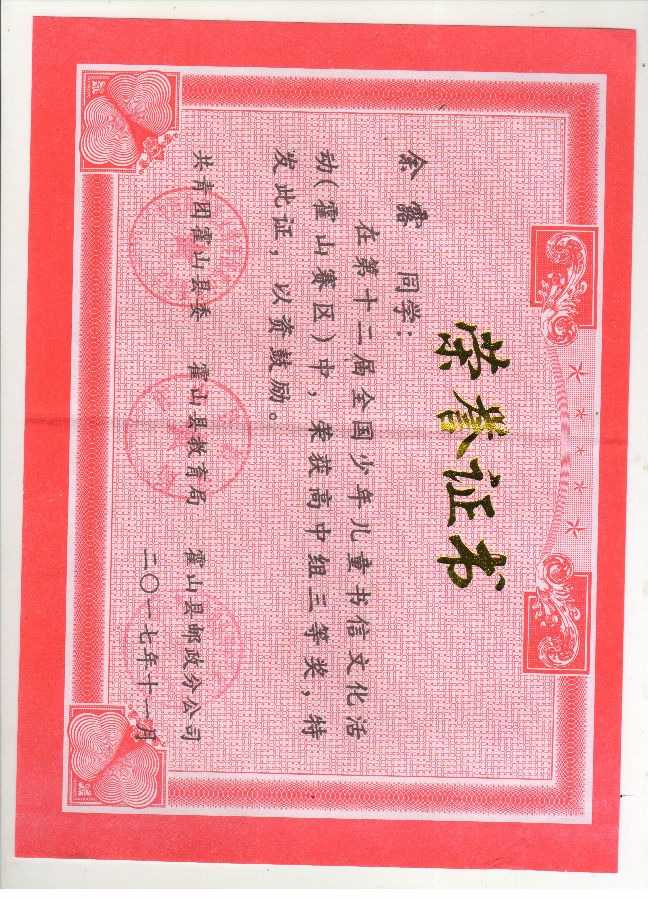 荣誉证书
余露 同学：
在第十二届全国少年儿童书信文化活
动(霍山赛区)中，荣获高中组三等奖，特
发此证，以资鼓励。
共青团霍山县委 霍山县教育局 霍山县邮政分公司
二〇一七年十一月